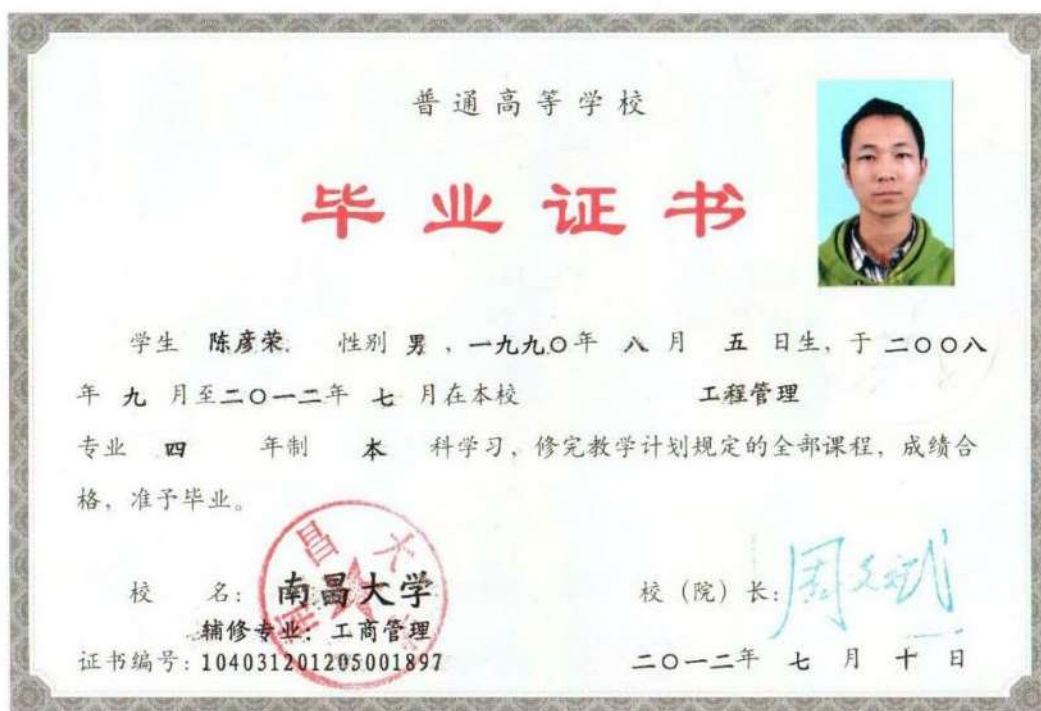 普通高等学校
毕业证书
学生 陈彦荣 性别 男,一九九〇年 八 月 五 日生,于 二〇〇八
年 九 月至二〇一二年 七 月在本校 工程管理
专业 四 年制 本 科学习,修完教学计划规定的全部课程,成绩合
格,准予毕业。
校 名: 南昌大学
辅修专业: 工商管理
证书编号: 104031201205001897
校(院)长: 周文斌
二〇一二年 七 月 十 日
南昌大学